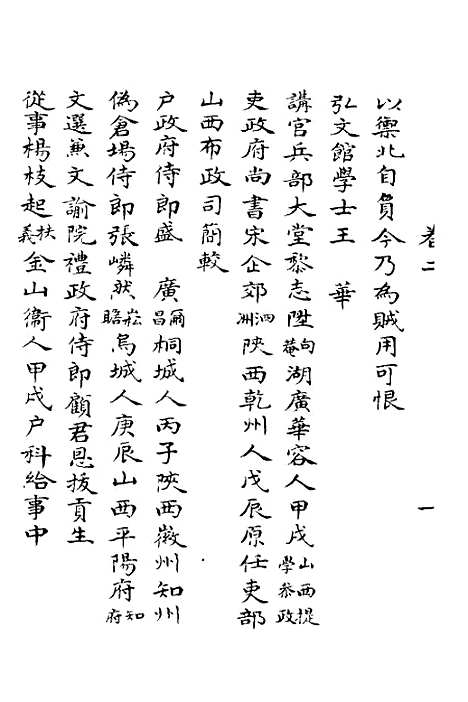 卷二　一
以禦北自負今乃為賊用可恨
弘文館學士王　華
講官兵部大堂黎志陞向菴湖廣華容人甲戌山西提學參政
吏政府尚書宋企郊泗洲陝西乾州人戊辰原任吏部
山西布政司簡較
户政府侍郎盛　廣爾昌桐城人丙子陝西徽州知州
偽倉場侍郎張嶙然崧瞻烏城人庚辰山西平陽府知府
文選兼文諭院禮政府侍郎顧君恩拔貢生
從事楊枝起扶義金山衞人甲戌户科給事中